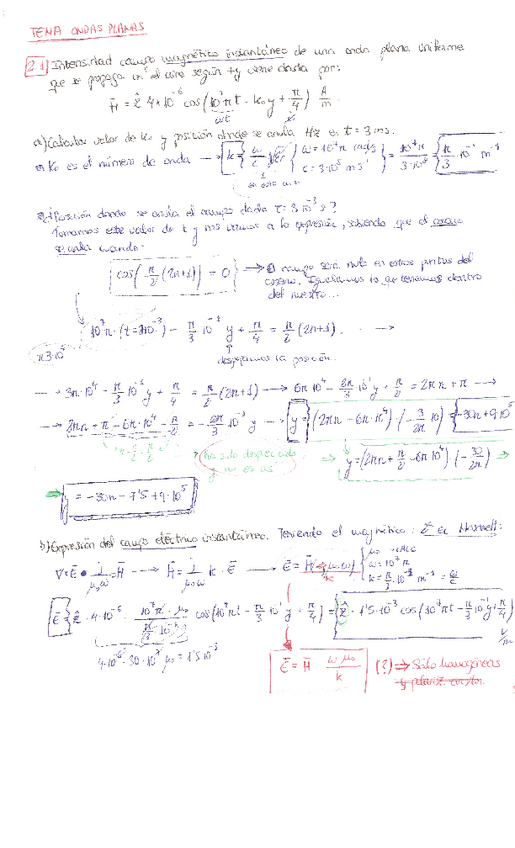 TEMA ONDAS PLANAS
2.1 Intensidad campo magnético instantáneo de una onda plana uniforme
que se propaga en el aire según +y viene dada por:
H̄ = ẑ 4*10⁻⁶ cos(10⁷πt - k₀y + π/4) A/m
a) Calcular valor de k₀ y posición donde se anula Hz en t = 3 ms.
k₀ es el número de onda → k = ω/c { ω = 10⁷π rad/s
c = 3·10⁸ m s⁻¹ } = 10⁷π / 3·10⁸ = π/3 · 10⁻¹ m⁻¹
Posición donde se anula el campo dada t = 3·10⁻³ s?
Tomamos este valor de t y nos vamos a la expresión, sabiendo que el coseno
se anula cuando:
cos(π/2 (2n+1)) = 0 → El campo será nulo en estos puntos del
coseno. Igualamos lo que tenemos dentro
del nuestro...
10⁷π · (t=3·10⁻³) - π/3 · 10⁻¹ y + π/4 = π/2 (2n+1) . →
π3·10⁴
despejamos la posición.
→ 3π·10⁴ - π/3 · 10⁻¹ y + π/4 = π/2 (2n+1) → 6π·10⁴ - 2π/3 10⁻¹ y + π/2 = 2πn + π →
→ 2πn + π - 6π·10⁴ - π/2 = - 2π/3 10⁻¹ y → y = (2πn - 6π·10⁴) · (- 3/2π 10) = -30n + 9·10⁵
ha sido despreciado
y no es así
⇒ y = (2πn + π/2 - 6π10⁴) · (- 30/2π) ⇒
⇒ = -30n - 7'5 + 9·10⁵
b) Expresión del campo eléctrico instantáneo. Teniendo el magnético: 2ª Ec Maxwell:
ω = 10⁷π
k = π/3 · 10⁻¹ m⁻¹ = ω/c
4·10⁻⁶ · 30·10⁷ μ₀ = 1'5 10⁻³
Ē = H̄ ωμ₀/k (?) ⇒ Sólo homogéneas